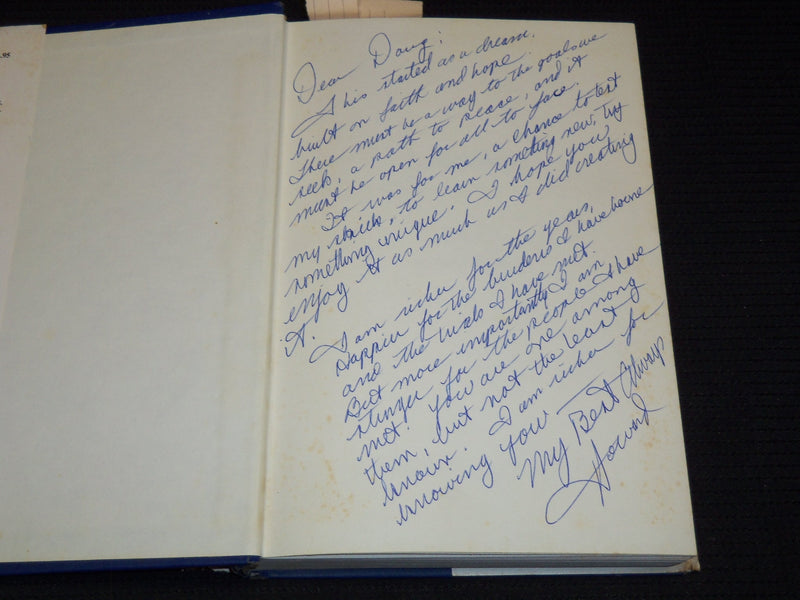 .95
Dear Doug:
This started as a dream.
built on faith and hope.
There must be a way to the goals we
seek, a path to peace, and it
must be open for all to face.
It was for me, a chance to test
my skills, to learn something new, try
something unique. I hope you
enjoy it as much as I did creating
it.
I am richer for the years,
happier for the burdens I have borne
and the trials I have met.
But more importantly I am
stronger for the people I have
met. You are one among
them, but not the least
known. I am richer for
knowing you —
My Best Always
Howard